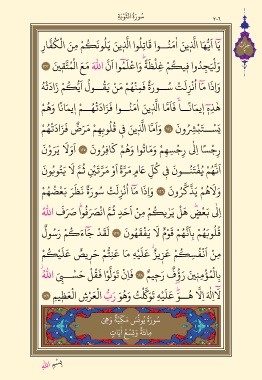 سُورَةُ التَّوْبَةِ
٢٠٦
يَٓا اَيُّهَا الَّذ۪ينَ اٰمَنُوا قَاتِلُوا الَّذ۪ينَ يَلُونَكُمْ مِنَ الْكُفَّارِ
وَلْيَجِدُوا ف۪يكُمْ غِلْظَةًۜ وَاعْلَمُٓوا اَنَّ اللّٰهَ مَعَ الْمُتَّق۪ينَ ﴿١٢٣﴾
وَاِذَا مَٓا اُنْزِلَتْ سُورَةٌ فَمِنْهُمْ مَنْ يَقُولُ اَيُّكُمْ زَادَتْهُ
هٰذِه۪ٓ ا۪يمَانًاۚ فَاَمَّا الَّذ۪ينَ اٰمَنُوا فَزَادَتْهُمْ ا۪يمَانًا وَهُمْ
يَسْتَبْشِرُونَ ﴿١٢٤﴾ وَاَمَّا الَّذ۪ينَ ف۪ي قُلُوبِهِمْ مَرَضٌ فَزَادَتْهُمْ
رِجْسًا اِلٰى رِجْسِهِمْ وَمَاتُوا وَهُمْ كَافِرُونَ ﴿١٢٥﴾ اَوَلَا يَرَوْنَ
اَنَّهُمْ يُفْتَنُونَ ف۪ي كُلِّ عَامٍ مَرَّةً اَوْ مَرَّتَيْنِ ثُمَّ لَا يَتُوبُونَ
وَلَا هُمْ يَذَّكَّرُونَ ﴿١٢٦﴾ وَاِذَا مَٓا اُنْزِلَتْ سُورَةٌ نَظَرَ بَعْضُهُمْ
اِلٰى بَعْضٍۜ هَلْ يَرٰيكُمْ مِنْ اَحَدٍ ثُمَّ انْصَرَفُواۜ صَرَفَ اللّٰهُ
قُلُوبَهُمْ بِاَنَّهُمْ قَوْمٌ لَا يَفْقَهُونَ ﴿١٢٧﴾ لَقَدْ جَٓاءَكُمْ رَسُولٌ
مِنْ اَنْفُسِكُمْ عَز۪يزٌ عَلَيْهِ مَا عَنِتُّمْ حَر۪يصٌ عَلَيْكُمْ
بِالْمُؤْمِن۪ينَ رَؤُ۫فٌ رَح۪يمٌ ﴿١٢٨﴾ فَاِنْ تَوَلَّوْا فَقُلْ حَسْبِيَ اللّٰهُۘ
لَٓا اِلٰهَ اِلَّا هُوَۜ عَلَيْهِ تَوَكَّلْتُ وَهُوَ رَبُّ الْعَرْشِ الْعَظ۪يمِ ﴿١٢٩﴾
سُورَةُ يُونُسَ مَكِّيَّةٌ وَهِيَ
مِائَةٌ وَتِسْعُ اٰيَاتٍ
بِسْمِ اللّٰهِ